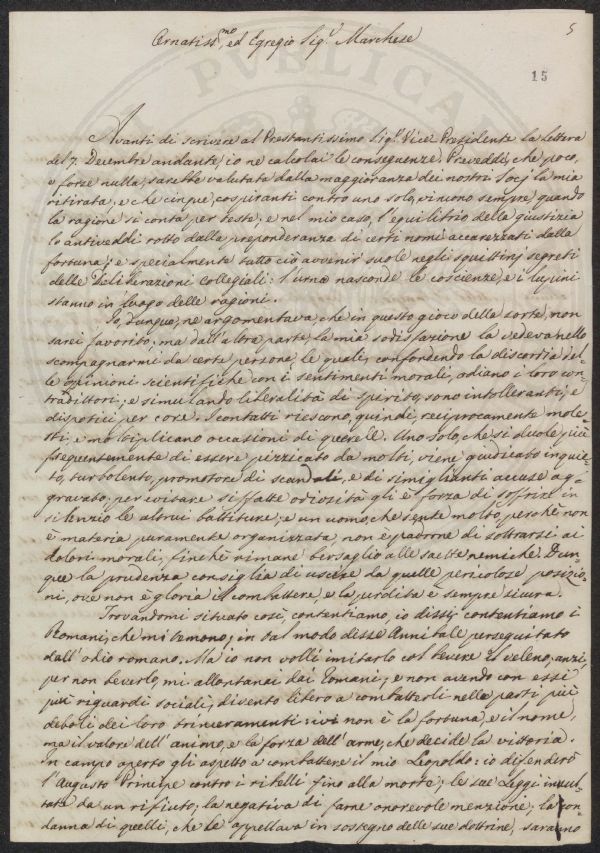 5
Ornatiss.mo ed Egregio Sig.r Marchese
15
Avanti di scrivere al Prestantissimo Sig.r Vice Presidente la lettera
del 7. Decembre andante, io ne calcolai le conseguenze. Preveddi, che poco,
o forze nulla, sarebbe valutata dalla maggioranza dei nostri Socj la mia
ritirata, e che cinque, cospiranti contro uno solo, vincono sempre, quando
la ragione si conta per teste; e nel mio caso, l'equilibrio della giustizia
lo antiveddi rotto dalla preponderanza di certi nomi accarezzati dalla
fortuna; e specialmente tutto ciò avvenir suole negli squittinj segreti
delle Deliberazioni collegiali: l'urna nasconde le coscienze, e i lupini
stanno in luogo delle ragioni.
Io, dunque, ne argomentava, che in questo gioco della sorte, non
sarei favorito; ma dall'altra parte, la mia sodisfazione la vedeva nello
scompagnarmi da certe persone, le quali, confondendo la discordia del-
le opinioni scientifiche con i sentimenti morali, odiano i loro con-
tradittori; e simulando liberalità di spirito, sono intolleranti, e
dispotici per core. I contatti riescono, quindi, reciprocamente mole-
sti, e moltiplicano occasioni di querele. Uno solo, che si duole, più
frequentemente di essere pizzicato da molti, viene giudicato inquie-
to, turbolento, promotore di scandali, e di simiglianti accuse ag-
gravato: per evitare siffatte odiosità gli è forza di soffrire in
silenzio le altrui battiture; e un uomo, che sente molto, perchè non
è materia puramente organizzata, non è padrone di sottrarsi ai
dolori morali, finchè rimane bersaglio alle saette nemiche. Dun-
que la prudenza consiglia di uscire da quelle pericolose posizio-
ni, ove non è gloria il combattere, e la perdita è sempre sicura.
Trovandomi situato così, contentiamo, io dissi, contentiamo i
Romani, che mi temono; in tal modo desse Annibale perseguitato
dall'odio romano. Ma io non volli imitarlo col bevere il veleno, anzi,
per non beverlo, mi allontanai dai Romani; e non avendo con essi
più riguardi sociali, divento libero a combatterli nelle parti più
deboli dei loro trinceramenti: ivi non è la fortuna, e il nome,
ma il valore dell'animo, e la forza dell'arme, che decide la vittoria.
In campo aperto gli aspetto a combattere il mio Leopoldo: io difenderò
l'Augusto Principe contro i ribelli fino alla morte; le sue Leggi insul-
tate da un rifiuto, la negativa di farne onorevole menzione, la con-
danna di quelli, che le appellava in sostegno delle sue dottrine, saranno